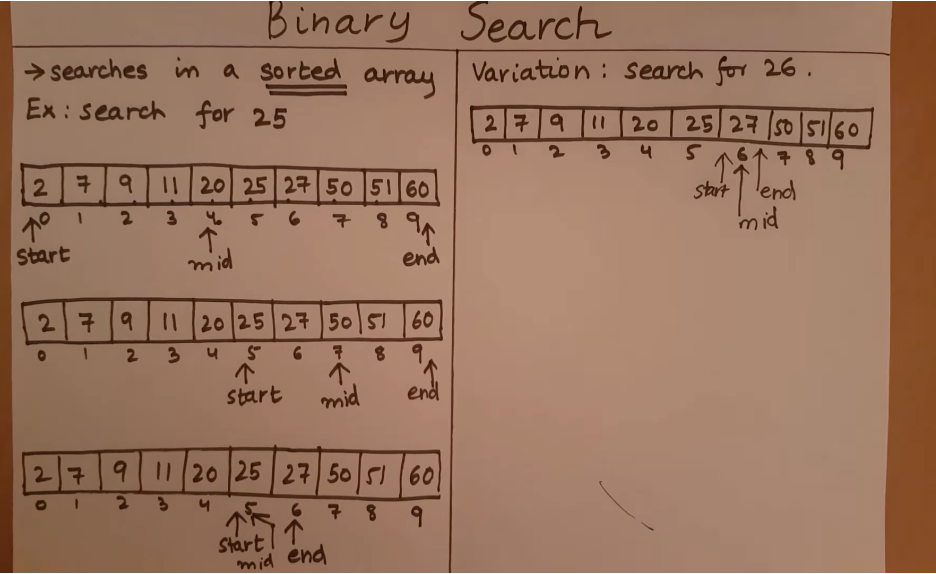 Binary Search
→ searches in a sorted array
Ex: search for 25
2 7 9 11 20 25 27 50 51 60
0 1 2 3 4 5 6 7 8 9
start mid end
2 7 9 11 20 25 27 50 51 60
0 1 2 3 4 5 6 7 8 9
start mid end
2 7 9 11 20 25 27 50 51 60
0 1 2 3 4 5 6 7 8 9
start mid end
Variation: search for 26.
2 7 9 11 20 25 27 50 51 60
0 1 2 3 4 5 6 7 8 9
start end
mid